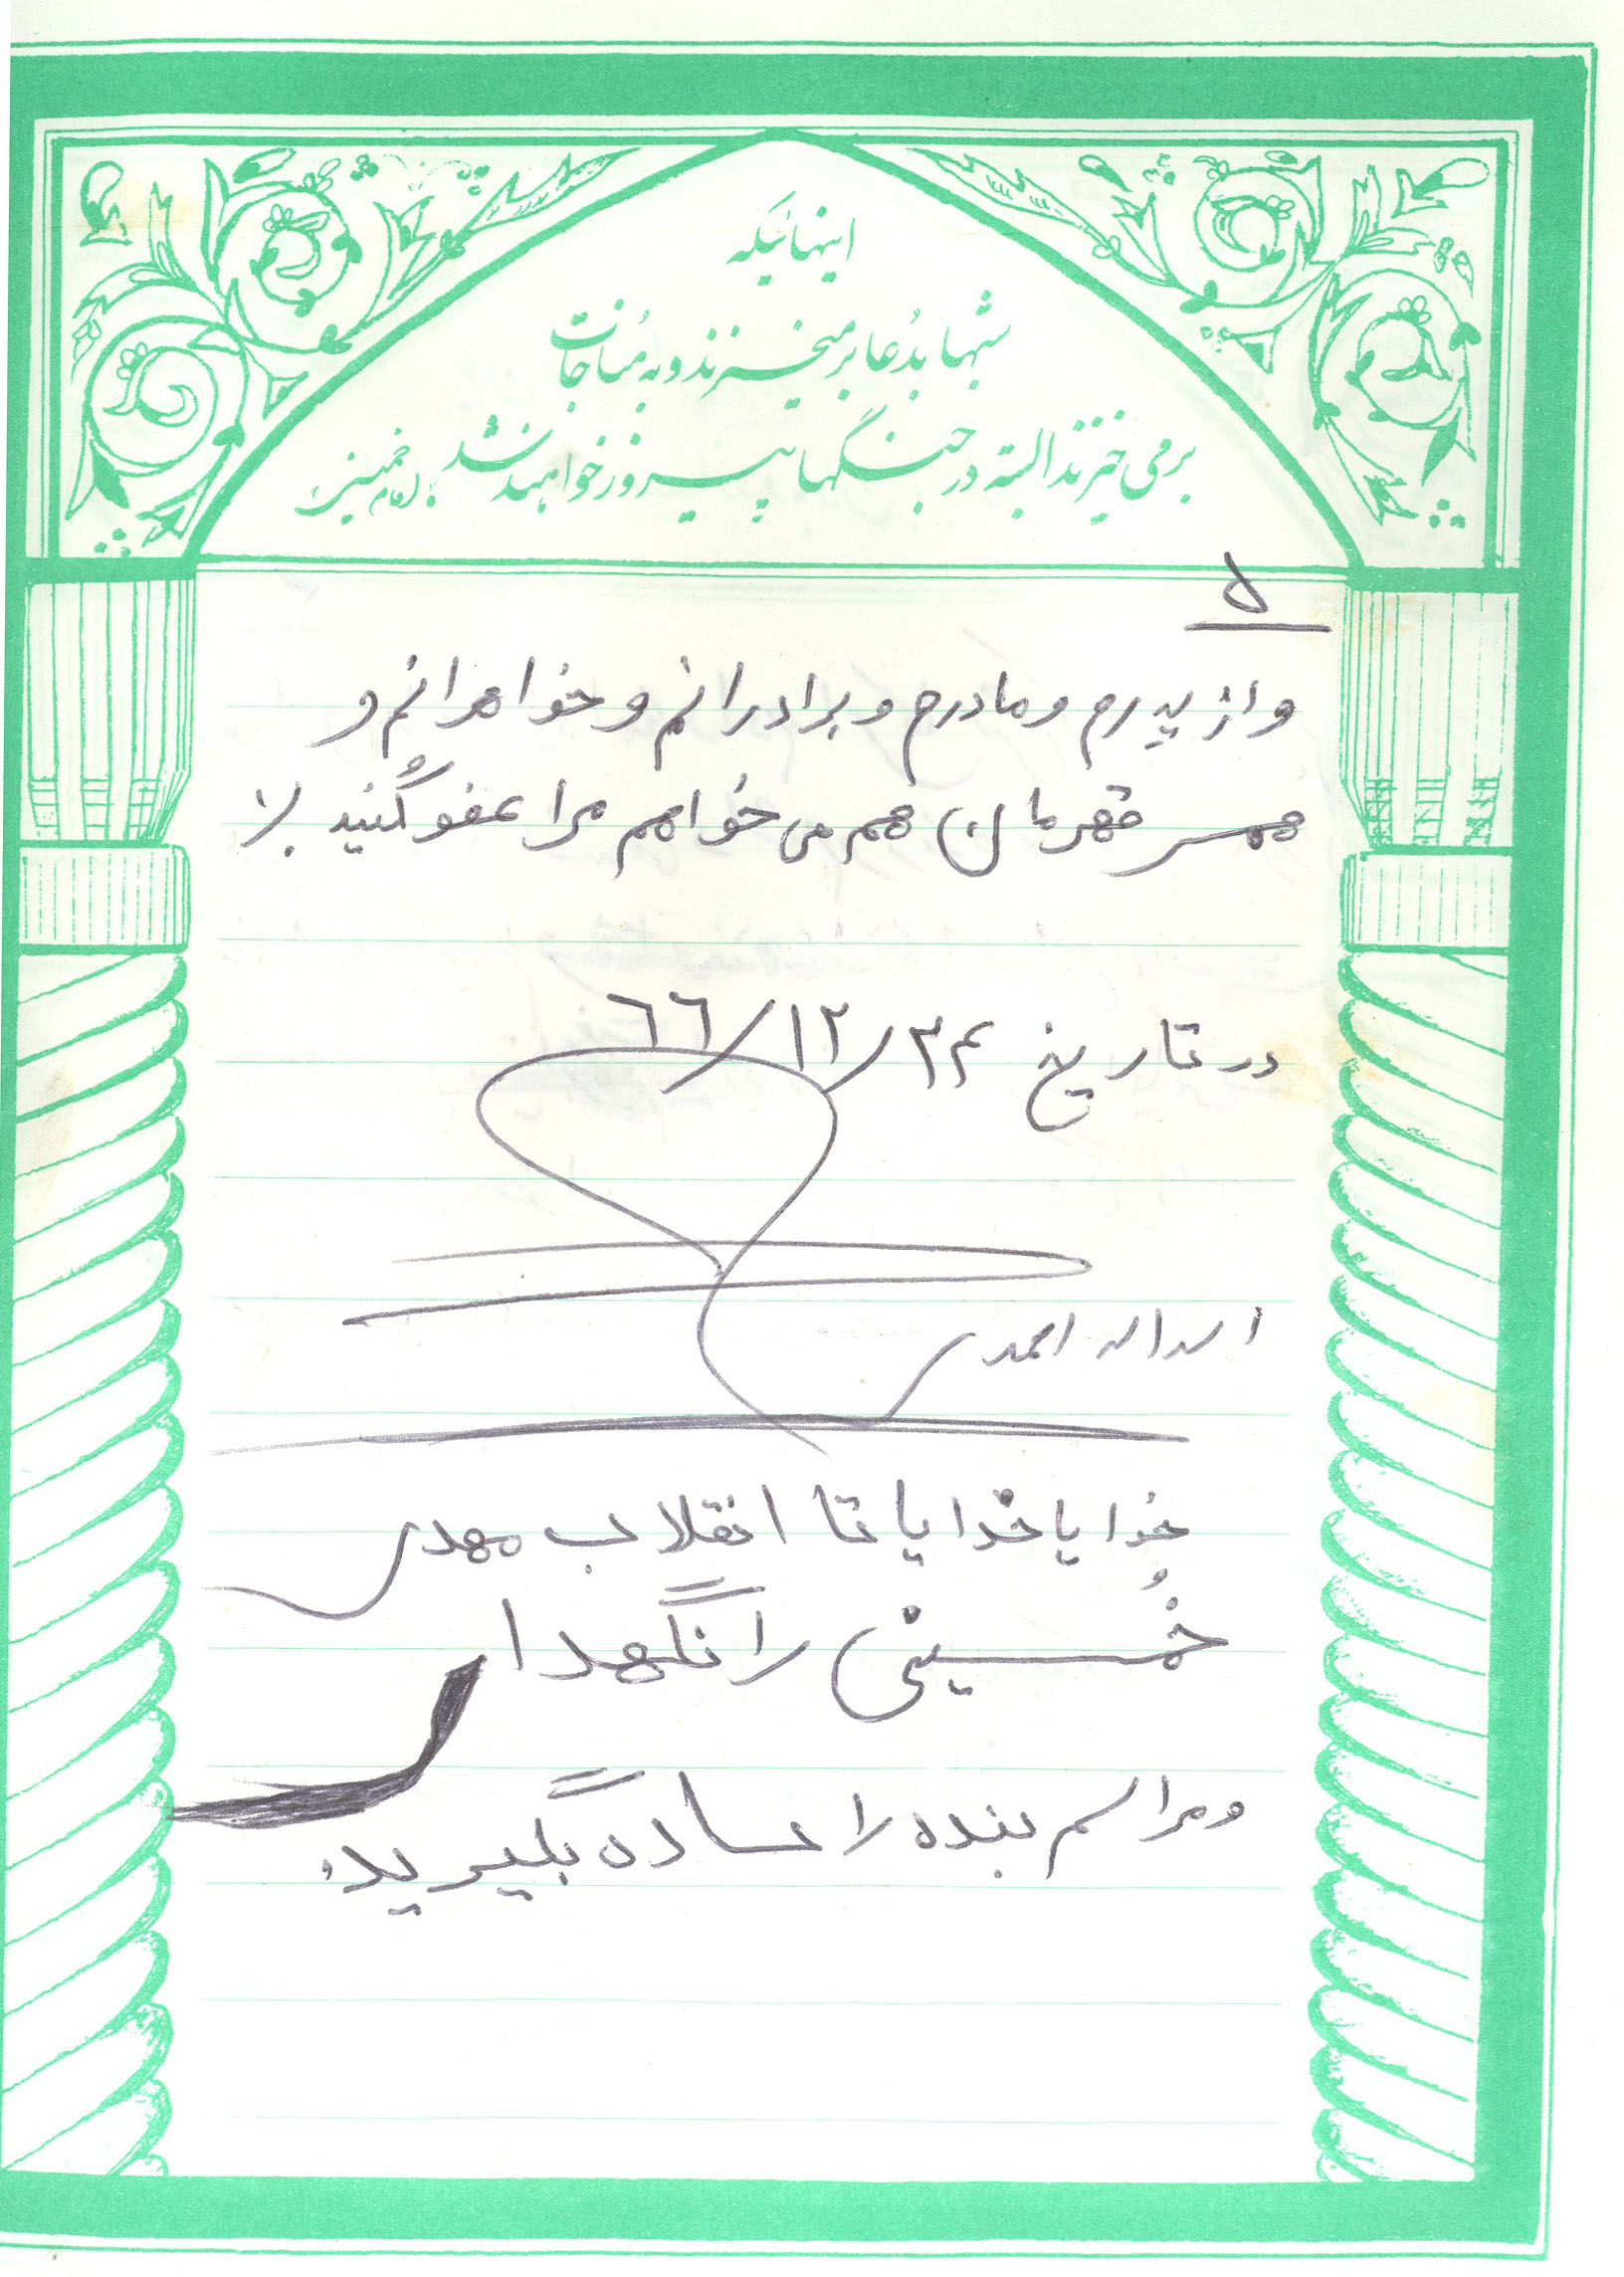 اینهائیکه
شبها بدُعا بر میخیزند و به مُناجات
برمی خیزند البته در جنگها پیروز خواهند شد. امام خمینی
۵
و از پدرم و مادرم و برادرانم و خواهرانم و
همسر قهرمان هم می خواهم مرا عفو کُنید
در تاریخ ۲۴/۱۲/۶۶
اسداله احمدی
خُدایا خدایا تا انقلاب مهدی
خُمینی را نگهدار
و مراسم بنده را ساده بگیرید.